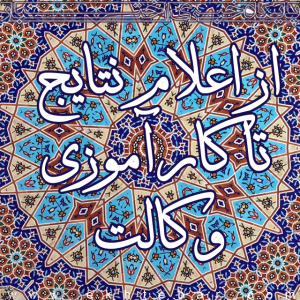 از اعلام نتایج
تا کارآموزی
وکالت